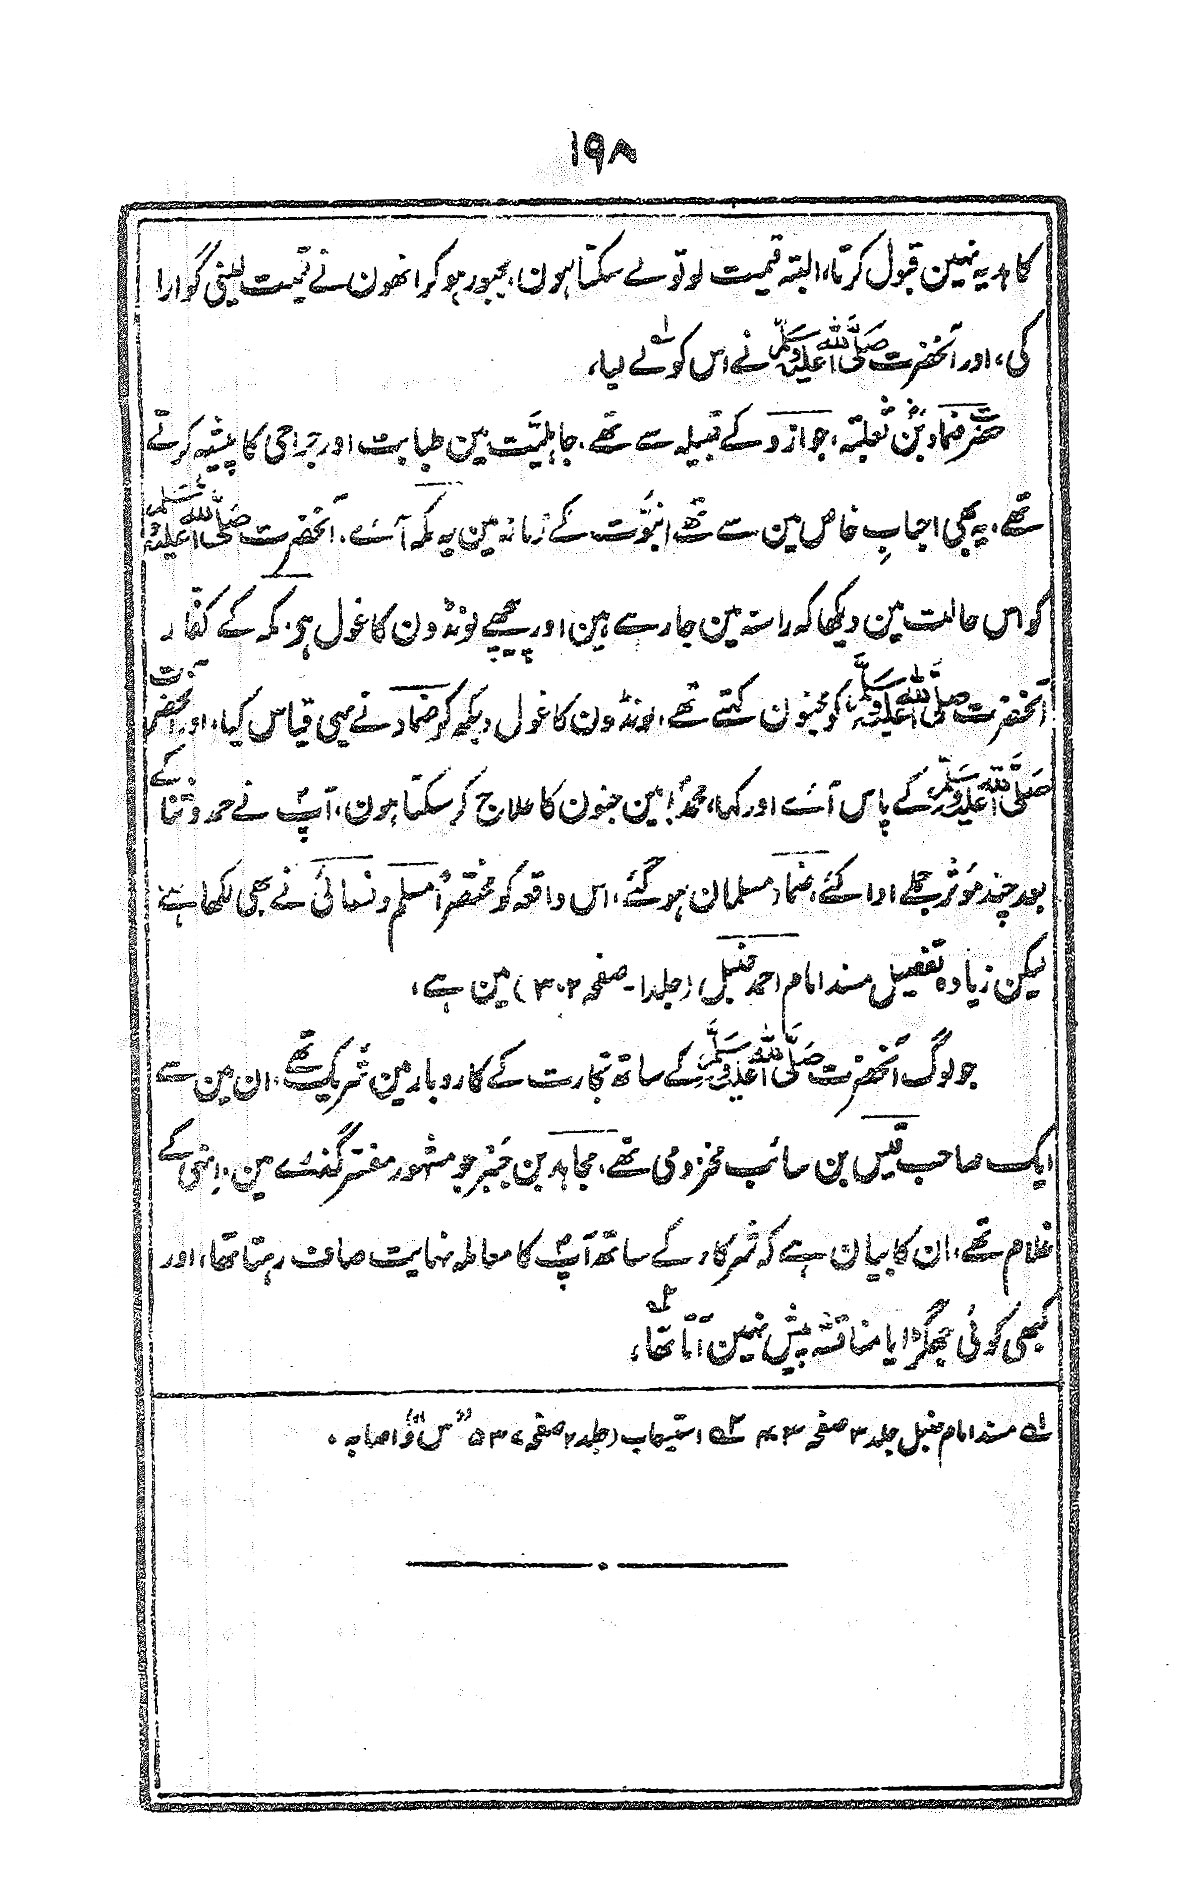 ۱۹۸
کا ہدیہ نہین قبول کرتا، البتہ قیمت لو تو لے سکتا ہون، مجبور ہو کر انھون نے قیمت لینی گوارا
کی، اور آنحضرت صلی اللہ علیہ وسلم نے اس کو لے لیا،
حضرت ضماد بن ثعلبہ، جو ازد کے قبیلہ سے تھے، جاہلیت مین طبابت اور جراحی کا پیشہ کرتے
تھے، یہ بھی احبابِ خاص مین سے تھے، نبوّت کے زمانہ مین یہ مکہ آئے، آنحضرت صلی اللہ علیہ وسلم
کو اس حالت مین دیکھا کہ راستہ مین جا رہے ہین اور پیچھے لونڈون کا غول ہی، مکہ کے کفّار
آنحضرت صلی اللہ علیہ وسلم کو مجنون کہتے تھے، لونڈون کا غول دیکھ کر ضماد نے یہی قیاس کیا، اور آنحضرت
صلی اللہ علیہ وسلم کے پاس آئے اور کہا، محمدؐ! مین جنون کا علاج کر سکتا ہون، آپؐ نے حمد و ثنا کے
بعد چند مؤثر جملے ادا کئے، ضماد مسلمان ہو گئے، اس واقعہ کو مختصراً مسلم و نسائی نے بھی لکھا ہے
لیکن زیادہ تفصیل مسند امام احمد حنبل (جلد۱۔ صفحہ ۳۰۲) مین ہے،
جو لوگ آنحضرت صلی اللہ علیہ وسلم کے ساتھ تجارت کے کاروبار مین شریک تھے، ان مین سے
ایک صاحب قیس بن سائب مخزومی تھے، مجاہد بن جُبیر جو مشہور مفسّر گذرے ہین، انہی کے
غلام تھے، ان کا بیان ہے کہ شرکاء کے ساتھ آپؐ کا معاملہ نہایت صاف رہتا تھا، اور
کبھی کوئی جھگڑا یا مناقشہ پیش نہین آتا تھا،
لہ مسند امام حنبل جلد ۳ صفحہ استیعاب (جلد ۲ صفحہ ۵۳۷) و اصابہ ۰